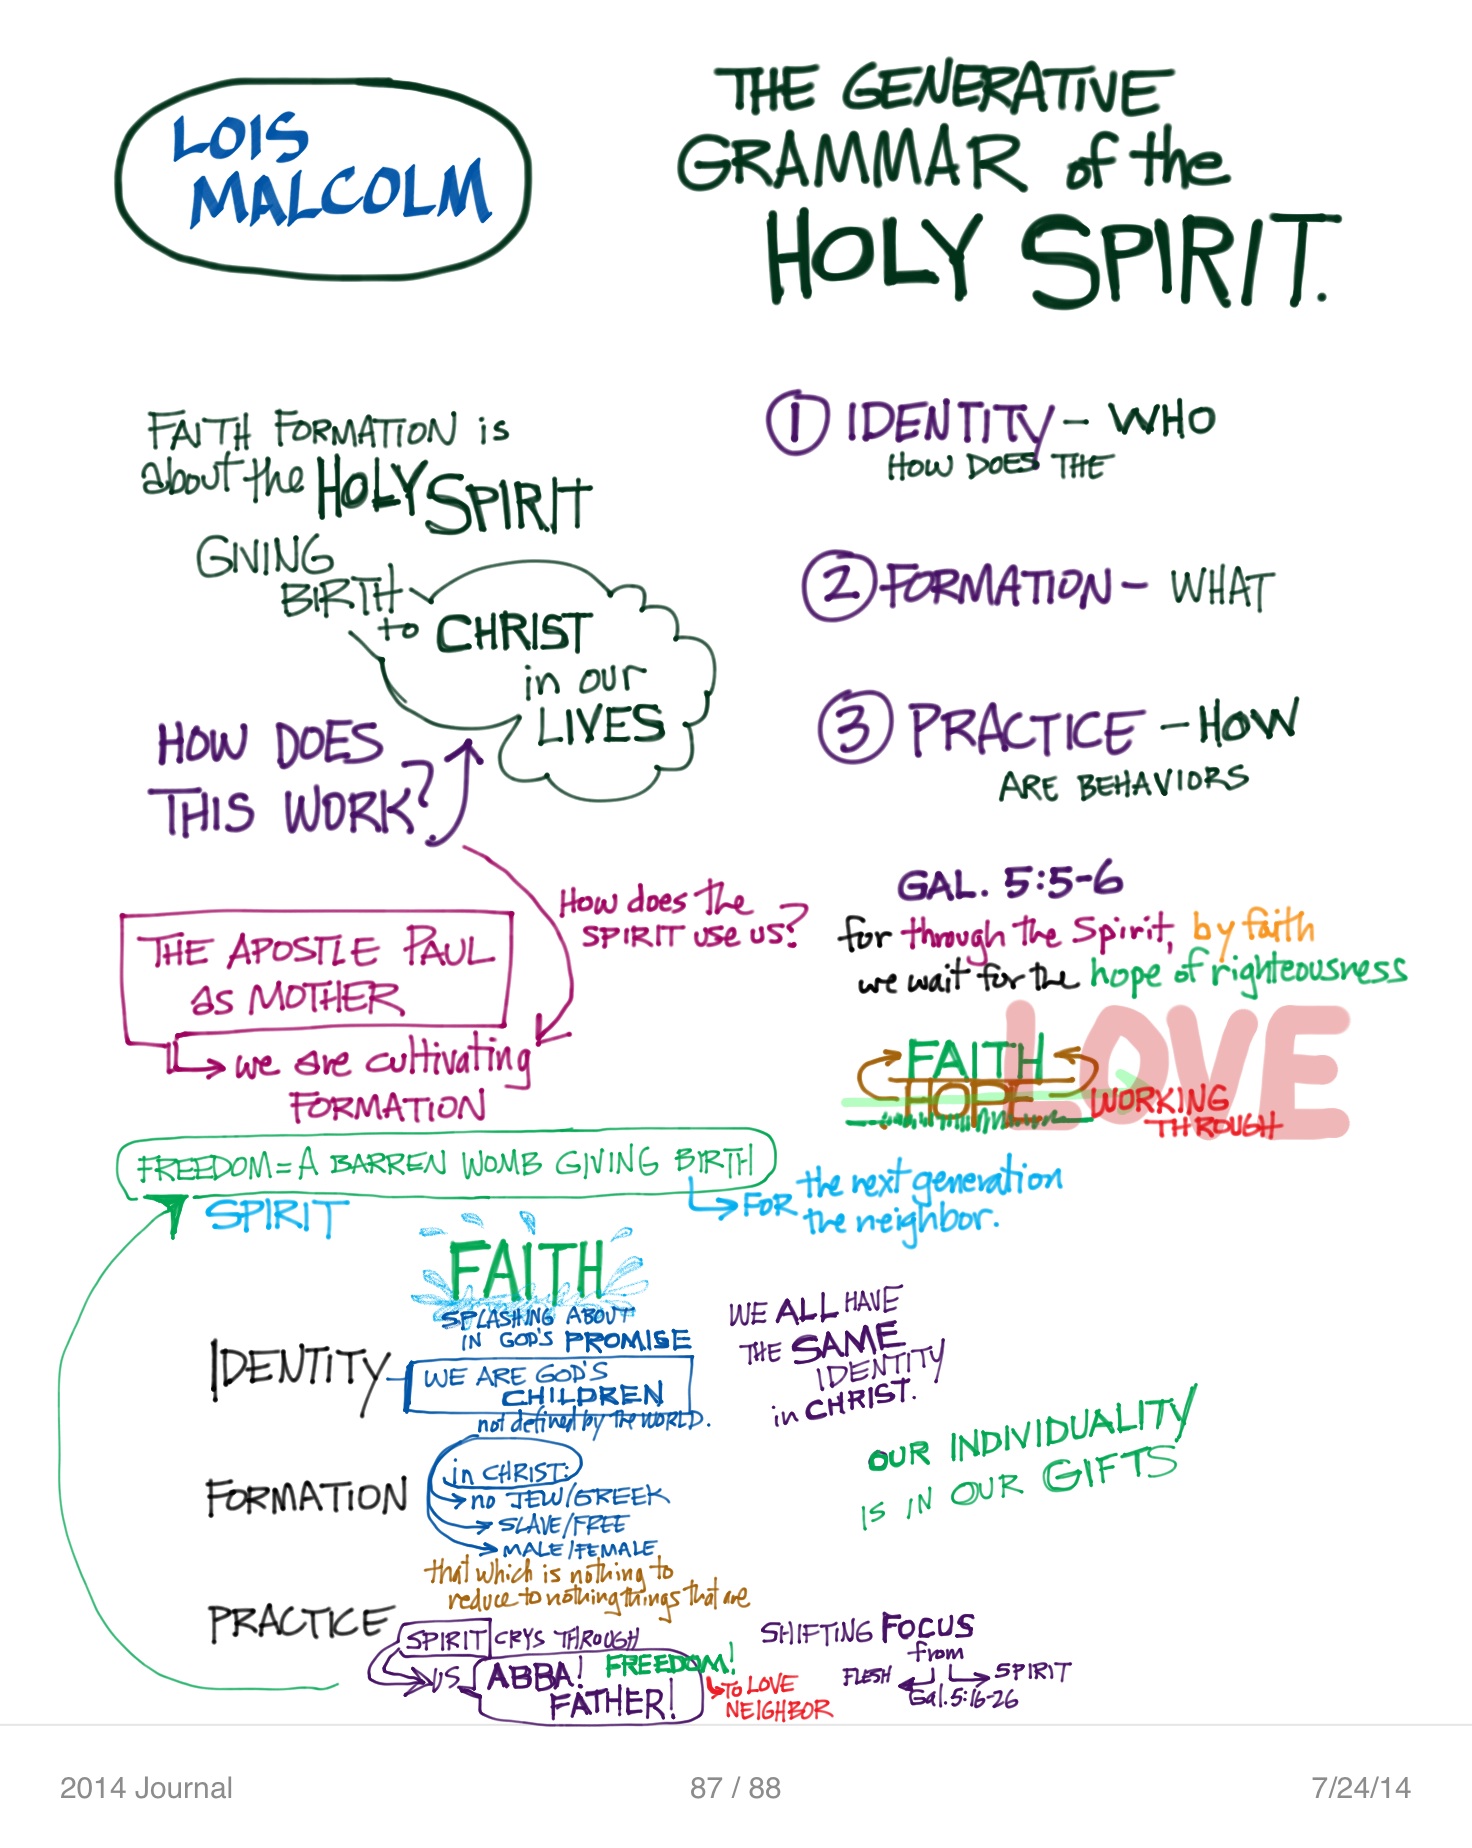 LOIS
MALCOLM
THE GENERATIVE
GRAMMAR of the
HOLY SPIRIT.
FAITH FORMATION is
about the HOLY SPIRIT
GIVING
BIRTH
to CHRIST
in our
LIVES
HOW DOES
THIS WORK?
① IDENTITY - WHO
HOW DOES THE
② FORMATION - WHAT
③ PRACTICE - HOW
ARE BEHAVIORS
How does the
SPIRIT use us?
THE APOSTLE PAUL
as MOTHER
we are cultivating
FORMATION
GAL. 5:5-6
for through the Spirit, by faith
we wait for the hope of righteousness
LOVE
FAITH
HOPE
WORKING
THROUGH
FREEDOM = A BARREN WOMB GIVING BIRTH
FOR the next generation
the neighbor.
SPIRIT
FAITH
SPLASHING ABOUT
IN GOD'S PROMISE
IDENTITY
WE ARE GOD'S
CHILDREN
not defined by the WORLD.
WE ALL HAVE
THE SAME
IDENTITY
in CHRIST.
OUR INDIVIDUALITY
IS IN OUR GIFTS
FORMATION
in CHRIST:
no JEW/GREEK
SLAVE/FREE
MALE/FEMALE
that which is nothing to
reduce to nothing things that are
PRACTICE
SPIRIT CRYS THROUGH
US
ABBA!
FATHER!
FREEDOM!
TO LOVE
NEIGHBOR
SHIFTING FOCUS
from
FLESH SPIRIT
Gal. 5:16-26
2014 Journal
87 / 88
7/24/14